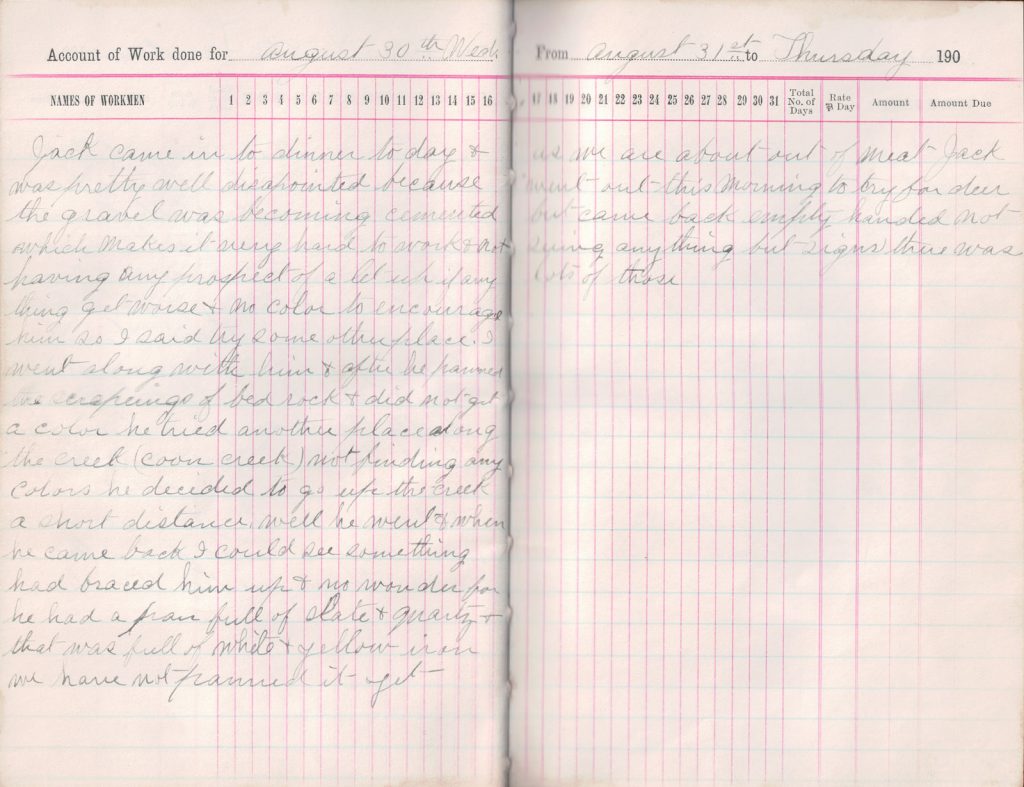 Account of Work done for August 30th Wed.
NAMES OF WORKMEN 1 2 3 4 5 6 7 8 9 10 11 12 13 14 15 16
Jack came in to dinner to day &
was pretty well disapointed because
the gravel was becoming cemented
which makes it very hard to work & not
having any prospect of a let up if any
thing get worse & no color to encourage
him so I said try some other place. I
went along with him & after he panned
the scrapeings of bed rock & did not get
a color he tried another place along
the creek (coon creek) not finding any
colors he decided to go up the creek
a short distance, well he went & when
he came back I could see something
had braced him up & no wonder for
he had a pan full of slate & quartz &
that was full of white & yellow iron
we have not panned it yet
From August 31st to Thursday 190
17 18 19 20 21 22 23 24 25 26 27 28 29 30 31 Total No. of Days Rate ⅌ Day Amount Amount Due
as we are about out of meat Jack
went out this morning to try for deer
but came back empty handed not
seing anything but signs there was
lots of those